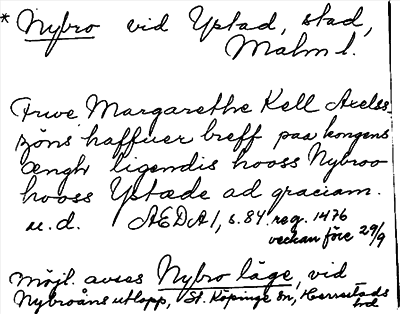 * Nybro vid Ystad, stad,
Malm l.
Frwe Margarethe Kell Axelss
zöns haffuer breff paa kongens
ængh ligendis hooss Nybroo
hooss Ystæde ad graciam.
u.d. ÆDA 1, s. 84. reg. 1476
veckan före 29/9
möjl. avses Nybro läge, vid
Nybroåns utlopp, St. Köpinge sn, Herrestads
hd